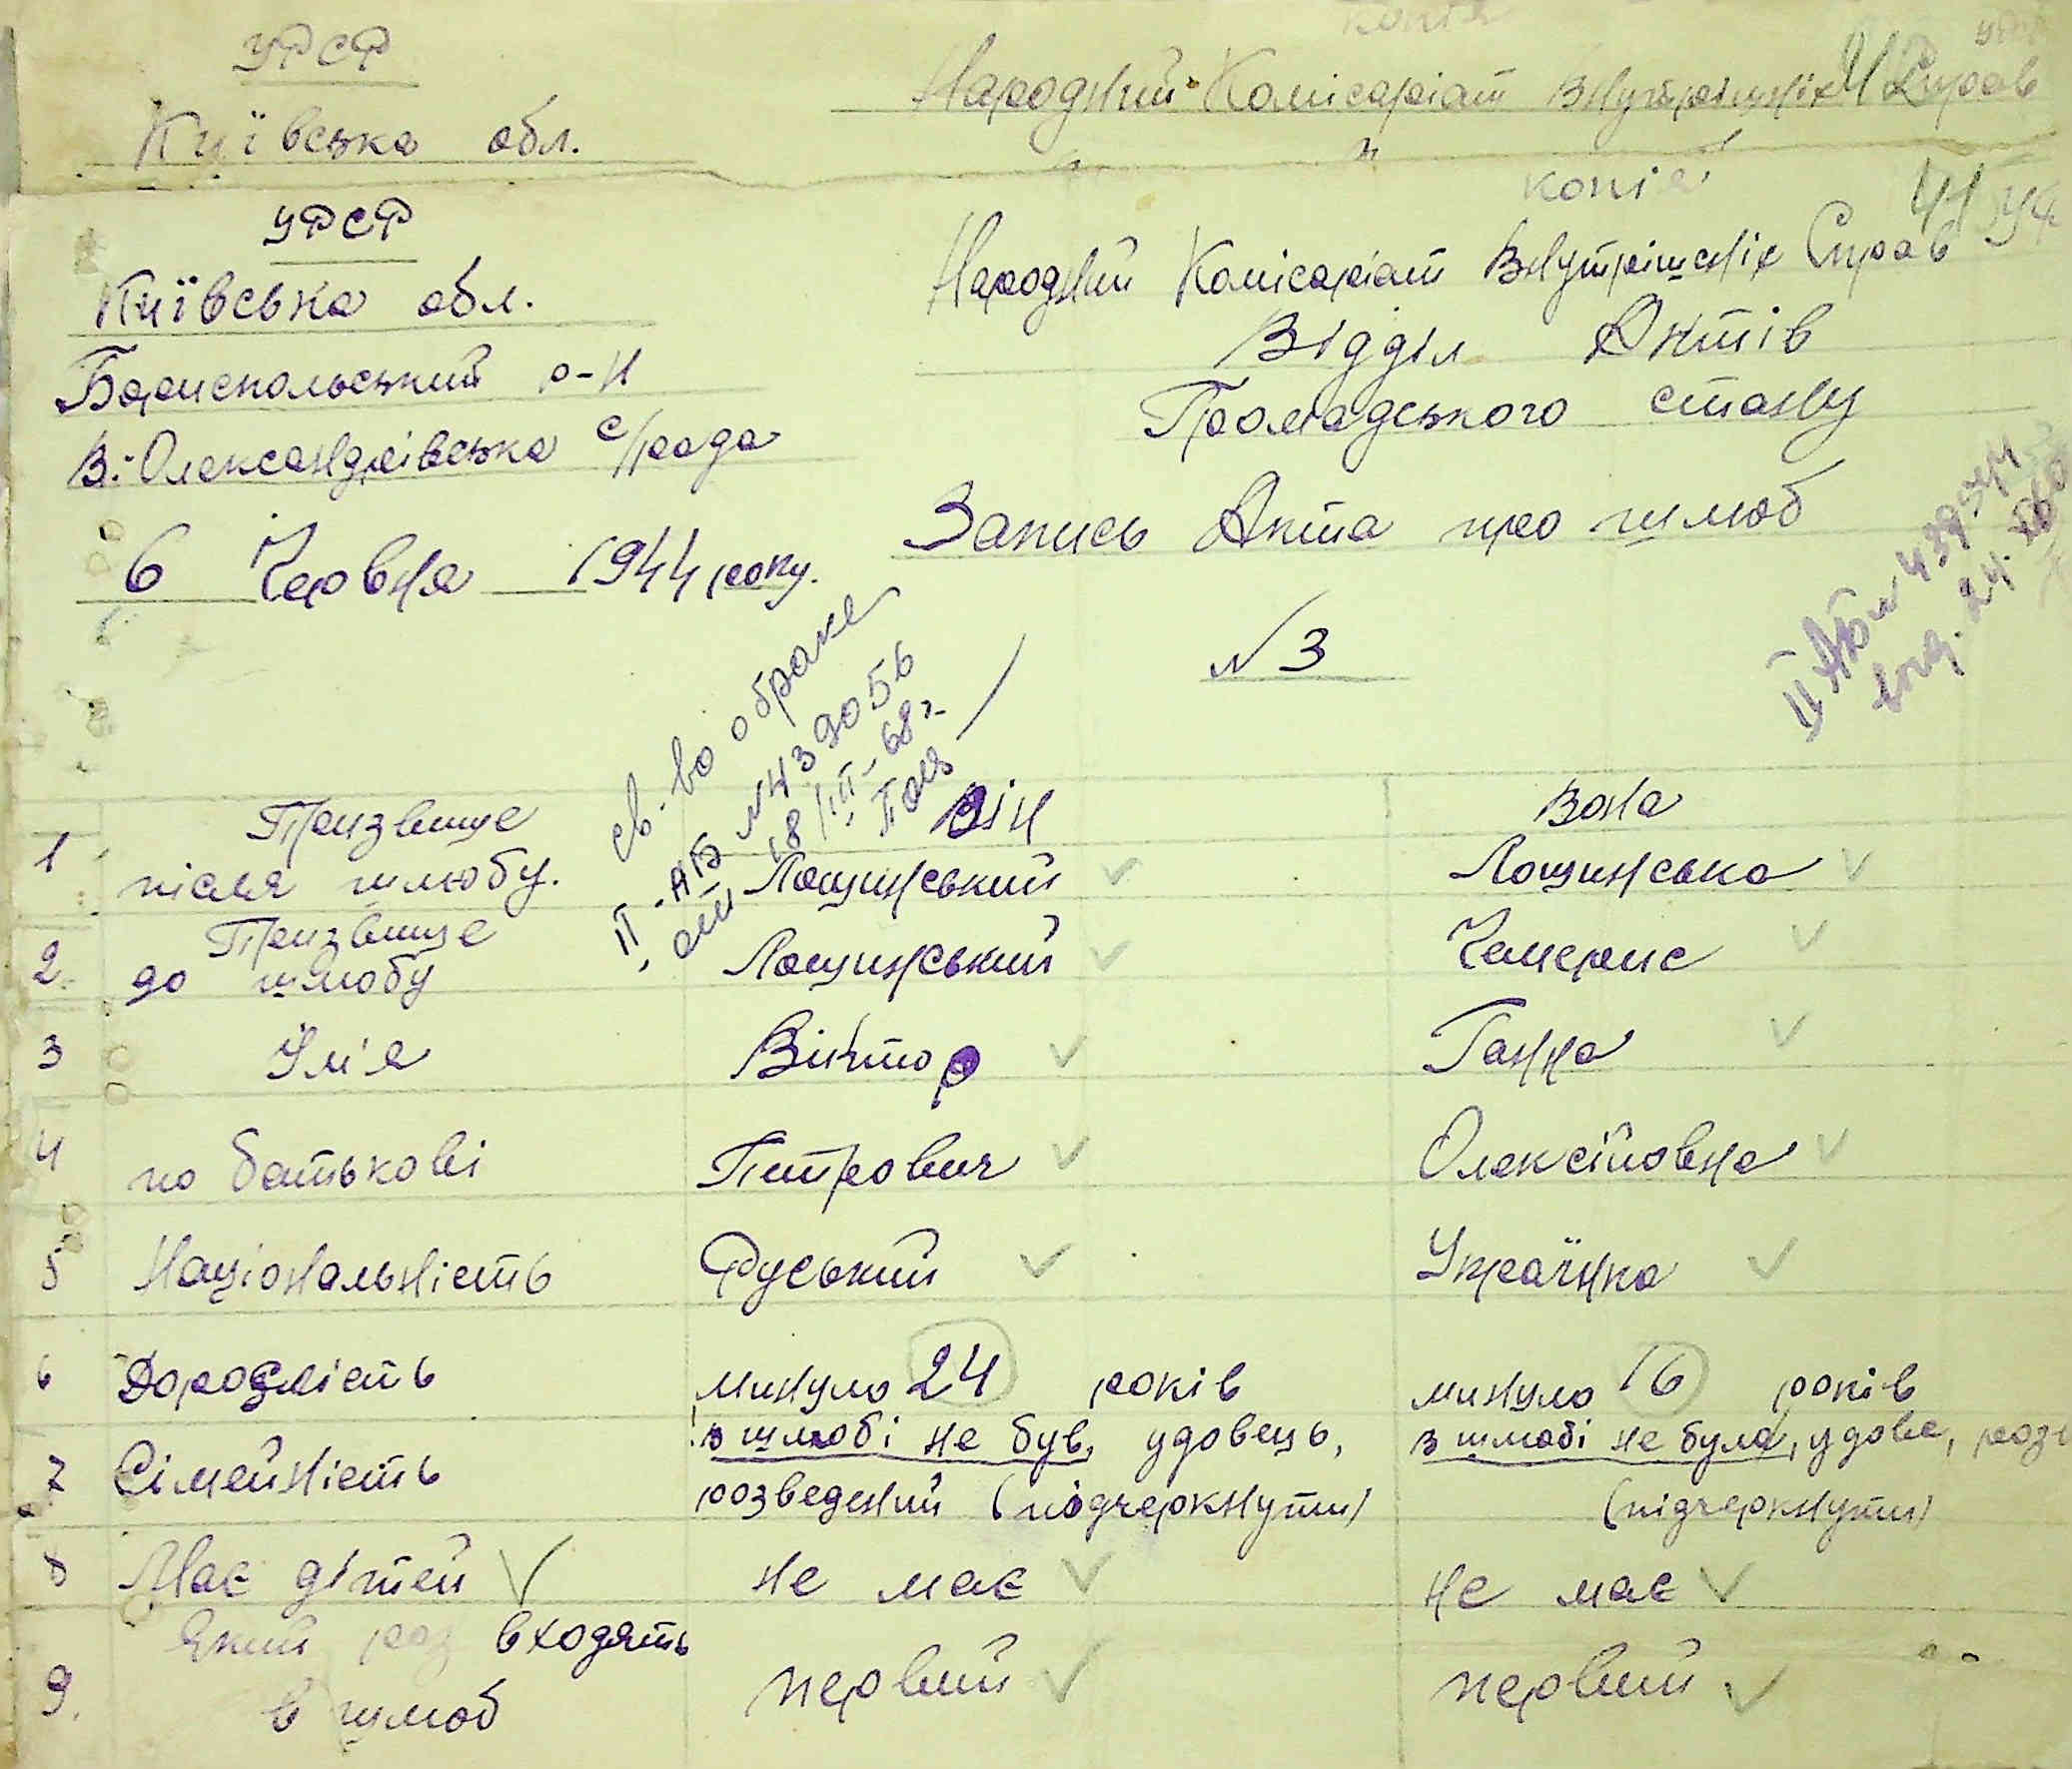 УРСР
Київська обл.
Народний Комісаріат Внутрішніх Справ
копія
УРСР
Київська обл.
Бориспольський р-н
В.-Олександрівська с/рада
6 Червня 1944 року.
Народний Комісаріат Внутрішніх Справ
Відділ Актів
Громадського стану
Запись Акта про шлюб
№ 3
св-во о браке
II-АБ № 439056
18/III-68 г.
Він
Вона
1 Призвище після шлюбу. Лощинський Лощинська
2. Призвище до шлюбу Лощинський Чемерис
3 Ім'я Віктор Ганна
4 по батькові Питрович Олексійовна
5 Національність Руський Українка
6 Дорослість минуло 24 років минуло 16 років
7 Сімейність в шлюбі не був, удовець, в шлюбі не була, удова,
розведений (підчеркнути) (підчеркнути)
8 Має дітей не має не має
9. Який раз входять в шлюб первий первий